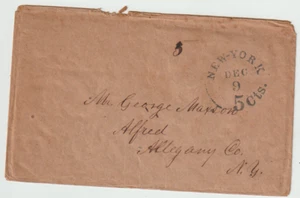 5
NEW-YORK
DEC
9
5 Cts.
Mr. George Maxson
Alfred
Allegany Co.
N.Y.